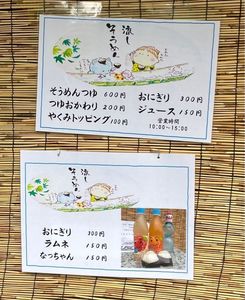 流し
そうめん
そうめんつゆ 600円
つゆおかわり 200円
やくみトッピング 100円
おにぎり 300円
ジュース 150円
営業時間
10:00~15:00
流し
そうめん
おにぎり 300円
ラムネ 150円
なっちゃん 150円